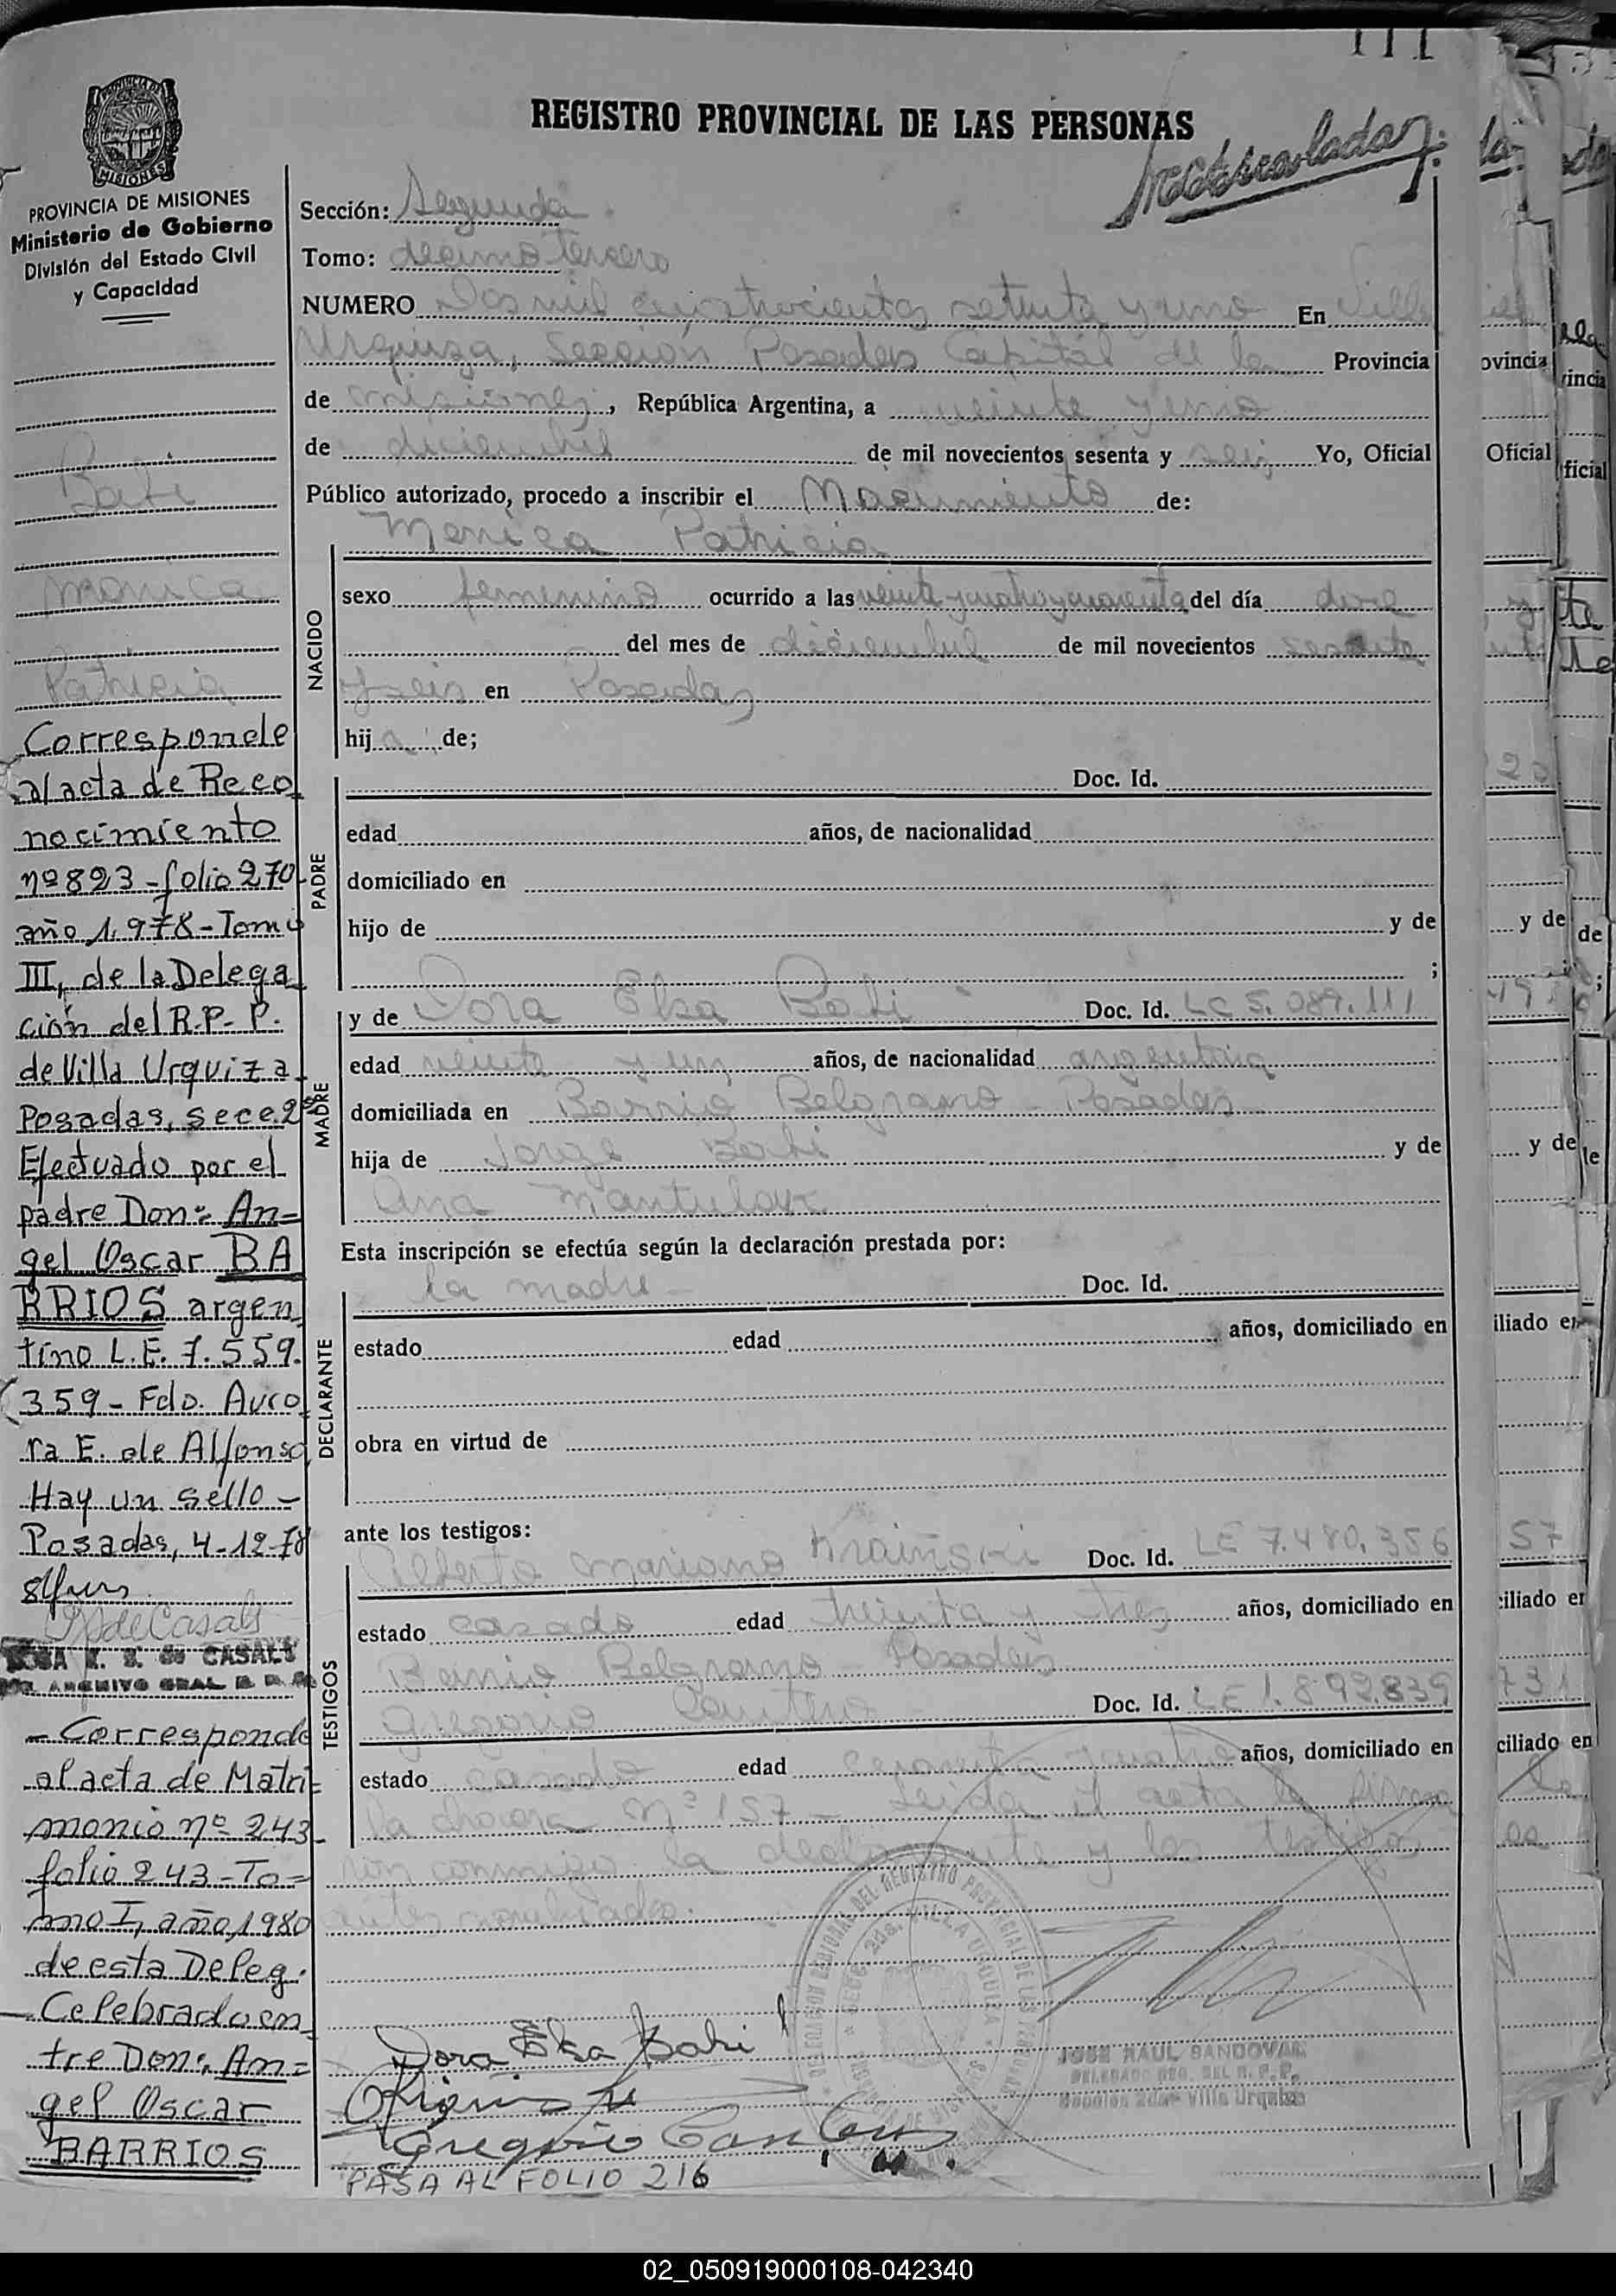 REGISTRO PROVINCIAL DE LAS PERSONAS
MISIONES
PROVINCIA DE MISIONES
Ministerio de Gobierno
División del Estado Civil
y Capacidad
Bati
Monica
Patricia
Corresponde
al acta de Reco
nocimiento
nº 823 - folio 270
año 1.978 - Tomo
III, de la Delega
ción del R.P.P.
de Villa Urquiza
Posadas, secc. 2ª
Efectuado por el
padre Don: An=
gel Oscar BA
RRIOS argen
tino L.E. 7.559.
359 - Fdo. Auro
ra E. de Alfonso
Hay un sello -
Posadas, 4-12-78
de Casals
DE CASALS
ARCHIVO GRAL
- Corresponde
al acta de Matri=
monio nº 243
folio 243 - To=
mo I, año, 1980
de esta Deleg.
- Celebrado en
tre Don: An=
gel Oscar
BARRIOS
Sección: Segunda
Tomo: decimo tercero
NUMERO Dos mil cuatrocientos setenta y uno En Villa
Urquiza, Sección Posadas Capital de la Provincia
de misiones, República Argentina, a veinte y uno
de diciembre de mil novecientos sesenta y seis Yo, Oficial
Público autorizado, procedo a inscribir el Nacimiento de:
Monica Patricia
NACIDO
sexo femenino ocurrido a las veinte y cuatro y cuarenta del día doce
del mes de diciembre de mil novecientos sesenta
y seis en Posadas
hij a de;
PADRE
Doc. Id.
edad años, de nacionalidad
domiciliado en
hijo de y de
;
MADRE
y de Dora Elsa Bati Doc. Id. LC 5.089.111
edad veinte y un años, de nacionalidad argentina
domiciliada en Barrio Belgrano - Posadas
hija de Jorge Bati y de
Ana
Esta inscripción se efectúa según la declaración prestada por:
DECLARANTE
la madre - Doc. Id.
estado edad años, domiciliado en
obra en virtud de
ante los testigos:
TESTIGOS
Alberto Mariano Krainski Doc. Id. LE 7.480.356
estado casado edad treinta y tres años, domiciliado en
Barrio Belgrano - Posadas
Gregorio Doc. Id. LE 1.892.839
estado casado edad años, domiciliado en
la chacra Nº 157 - Leida el acta la firma
ron conmigo la declarante y los testigos
antes nombrados.
Dora Elsa Bati
Gregorio
JOSE RAUL SANDOVAL
DELEGADO REG. DEL R.P.P.
Sección 2da Villa Urquiza
PASA AL FOLIO 216
02_050919000108-042340